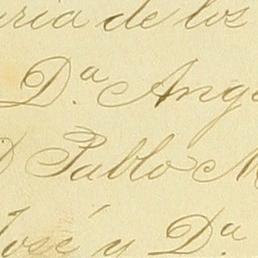 ria de los
D.ª Ang
D Pablo M
José y D.ª